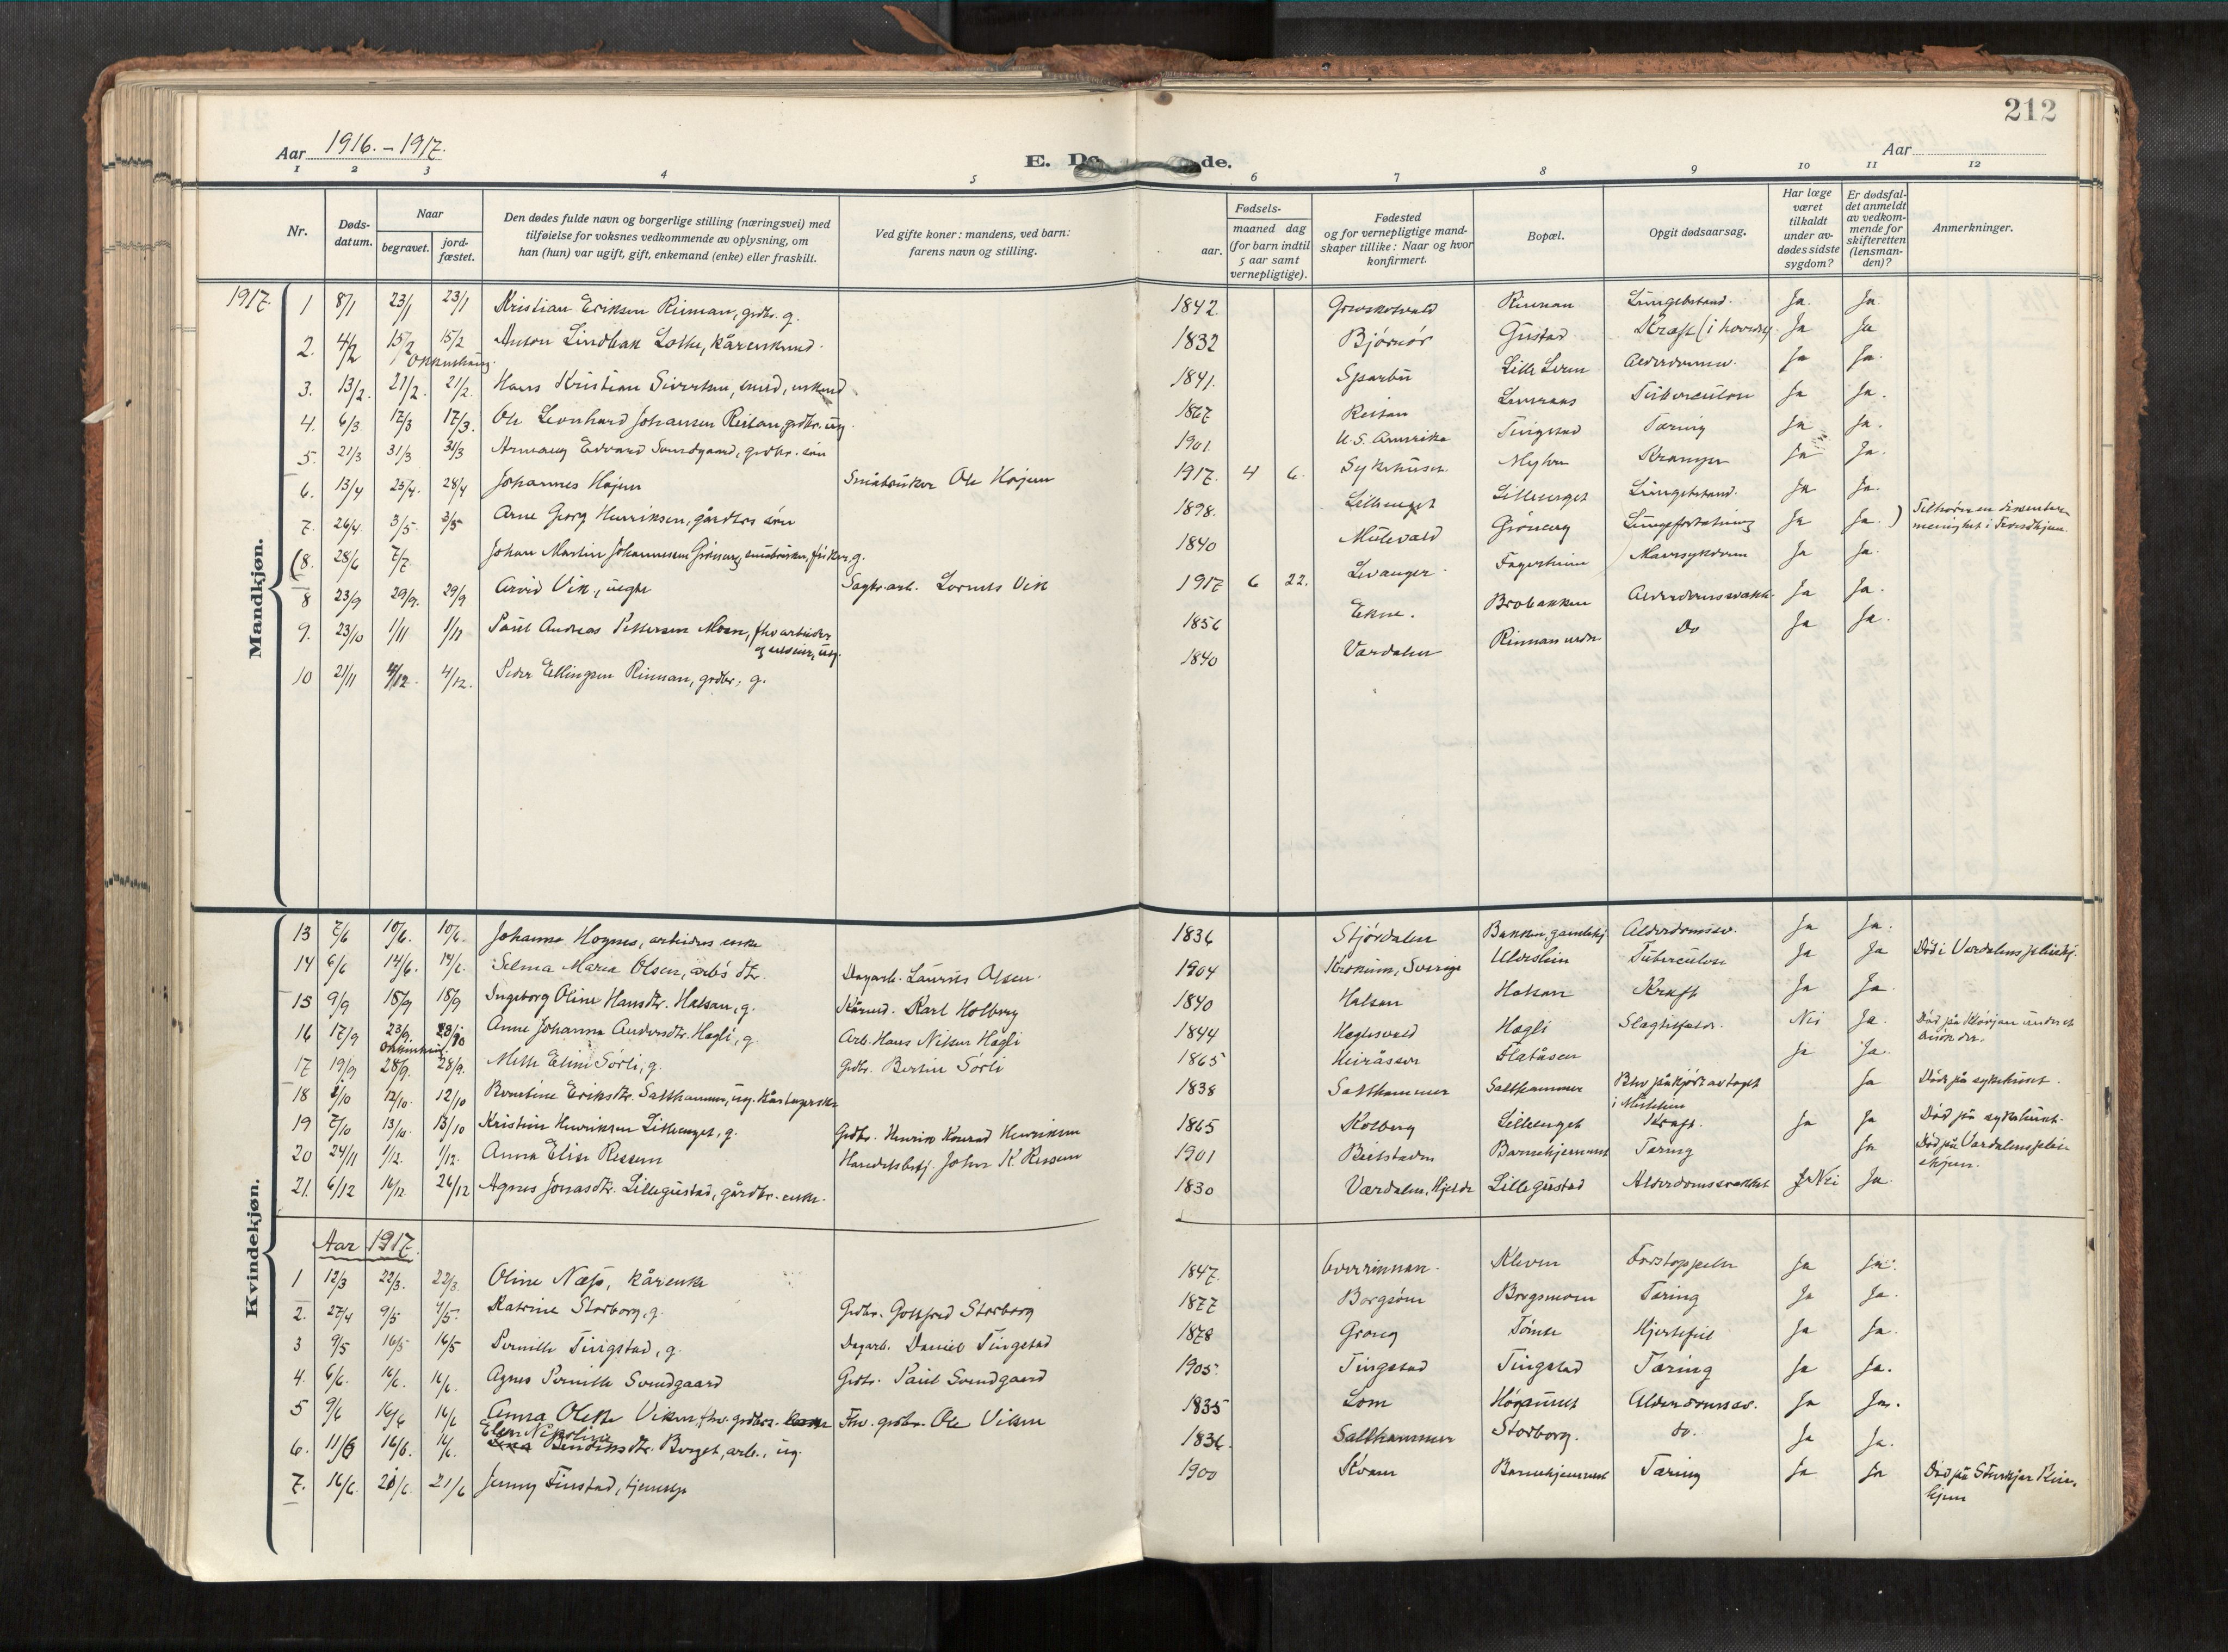 212
Aar 1916.-1917.
E. Dø de.
Aar
1 2 3 4 5 6 7 8 9 10 11 12
Nr.
Døds-datum.
Naar
begravet.
jord-fæstet.
Den dødes fulde navn og borgerlige stilling (næringsvei) med
tilføielse for voksnes vedkommende av oplysning, om
han (hun) var ugift, gift, enkemand (enke) eller fraskilt.
Ved gifte koner: mandens, ved barn:
farens navn og stilling.
Fødsels-
aar.
maaned dag
(for barn indtil
5 aar samt
vernepligtige).
Fødested
og for vernepligtige mand-
skaper tillike: Naar og hvor
konfirmert.
Bopæl.
Opgit dødsaarsag.
Har læge
været
tilkaldt
under av-
dødes sidste
sygdom?
Er dødsfal-
det anmeldt
av vedkom-
mende for
skifteretten
(lensman-
den)?
Anmerkninger.
Mandkjøn.
1917.
1 8/1 23/1 23/1 Kristian Eriksen Rinnan, grdbr. g. 1842 Rinnan Lungebetænd. Ja. Ja.
2. 4/2 15/2 15/2 Anton Lindbak Lothe, kårenkmd. 1832 Bjørnør Gustad Kræft (i hovedet) Ja Ja
3. 13/2. 21/2. 21/2. Hans Kristian Sivertsen, smed, enkmd 1841. Sparbu Lille Lein Alderdomssv. Ja Ja.
4. 6/3 17/3 17/3. Ole Leonhard Johansen Reitan, grdbr. ug. 1867 Reitan Tuberculose Ja Ja.
5. 21/3 31/3 31/3 Edvard Svendgaard, grdbr. søn 1901 U.S. Amerika Tingstad Tæring Ja Ja.
6. 13/4 25/4. 28/4 Johannes Højem Småbruker Ole Højem 1917. 4 6. Sykehuset Myhren Kramper Ja Ja.
7. 26/4 3/5. 3/5 Arne Georg Henriksen, gårdbrs søn 1898. Lillemyget Lungebetænd. Ja Ja
(8. 28/6 7/7 Johan Martin Johannesen Grønberg, småbruker, fisker, g. 1840 Mulevald Grønberg Ja Ja.) Tilhører en dissenter
menighet i Trondhjem
8 23/9 29/9. 29/9 Arvid Vik, uægte Sagbr.arb. Lorents Vik 1917 6 22. Levanger Fagerheim Mavesykdom Ja Ja.
9. 23/10 1/11 1/11 Paul Andreas Pettersen Moen, fhv arbeider ug. 1856 Ekne. Brobakken Alderdomssvakh. Ja Ja.
10 21/11 4/12. 4/12. Peder Ellingsen Rinnan, grdbr, g. 1840 Værdalen Rinnan nedre Do Ja Ja.
Kvindekjøn.
13 7/6 10/6. 10/6. Johanna Hognes, arbeiders enke 1836 Stjørdalen Bakken, gamlehj Alderdomssv. Ja Ja.
14 6/6 14/6. 14/6. Selma Maria Olsen, arb's dtr. Dagarb. Laurits Olsen. 1904 Krokum, Sverige Tuberculose Ja Ja Død i Værdalens pleiehj.
15 9/9 18/9 18/9 Ingeborg Oline Hansdtr. Halsan, g. Kårmd. Karl Holberg 1840 Halsan Halsan Kræft Ja Ja.
16 17/9 23/9. Anne Johanna Andersdtr. Hagli, g. Arb. Hans Nilsen Hagli 1844 Hagli Slagtilfælde. Nei Ja.
17 19/9 28/9. 28/9. Mette Elise Sørli, g. Grdbr. Bertin Sørli 1865 Heiråsen Flatåsen Ja Ja.
18 2/10 12/10. 12/10 Berntine Eriksdtr. Salthammer, ug. kårtagerske 1838 Salthammer Salthammer Blev påkjørt av toget Ja Døde på sykehuset.
19 7/10 13/10. 13/10 Kristine Henriksen Lillemyget, g. Grdbr. Henrik Konrad Henriksen 1865 Holberg Lillemyget Kræft. Ja Ja Død på sykehuset.
20 24/11 1/12. 1/12. Anna Elise Ressem Handelsbetj. John K. Ressem 1901 Beitstaden Barnehjemmet Tæring Ja Død på Værdalens pleie
hjem.
21. 6/12 16/12 26/12 Agnes Jonasdtr. Lillegustad, gårdbr. enke. 1830 Værdalen, Hjelde Lillegustad Alderdomssvakhet Nei Ja.
Aar 1917.
1 12/3 22/3. 22/3. Oline Næss, kårenke 1847. Overrinnan. Kleven Forstoppelse Ja Ja.
2. 27/4 9/5 9/5. Katrine Storborg, g. Grdbr. Gottfred Storborg 1877 Borgsmoen Tæring Ja Ja.
3 9/5 16/5 16/5 Pernille Tingstad, g. Dagarb. Daniel Tingstad 1878 Grong Tømte Hjertefeil Ja Ja.
4. 6/6. 16/6. 16/6. Agnes Pernille Svendgaard Grdbr. Paul Svendgaard 1905. Tingstad Tingstad Tæring Ja Ja.
5 9/6 16/6 16/6 Anna Olette Viken, fhv. grdbrs. Fhv. grdbr. Ole Viken 1835 Lom Alderdomssv. Ja Ja.
6. 11/6 16/6. 16/6. Elen Nikoline Bendiksdtr. Berget, arb., ug. 1836. Salthammer Storborg. do. Ja Ja.
7. 16/6. 21/6. 21/6 Jenny Finstad, tjenestp. 1900 Kvam Barnehjemmet Tæring Ja Ja Død på Stenkjær Pleie
hjem